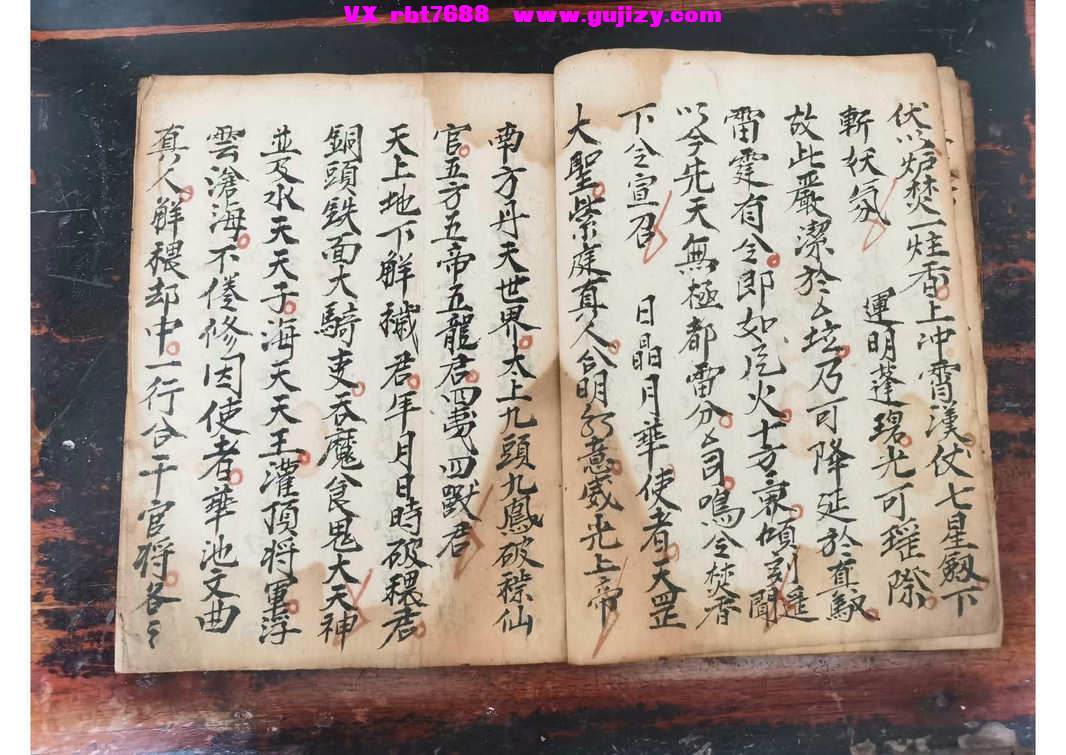 VX rbt7688 www.gujizy.com
伏以炉焚一炷香上冲霄漢仗七星劔下
斬妖氛 運明蓬 光可瑶際
故此嚴潔於 垃乃可降延於真馭
雷霆有令即如 火十方 傾刻遥聞
以今先天無極都雷分 司鳴令焚香
下令宣召 日晶月華使者天罡
大聖紫庭真人 明 意威光上帝
南方丹天世界太上九頭九鳳破穢仙
官五方五帝五龍君四夷四獸君
天上地下觧穢君年月日時破穢君
銅頭鉄面大騎吏吞魔食鬼大天神
並及水天天子海天天王灌頂将軍浮
雲滄海不倦修因使者華池文曲
真人觧穢却中一行合干官将各々